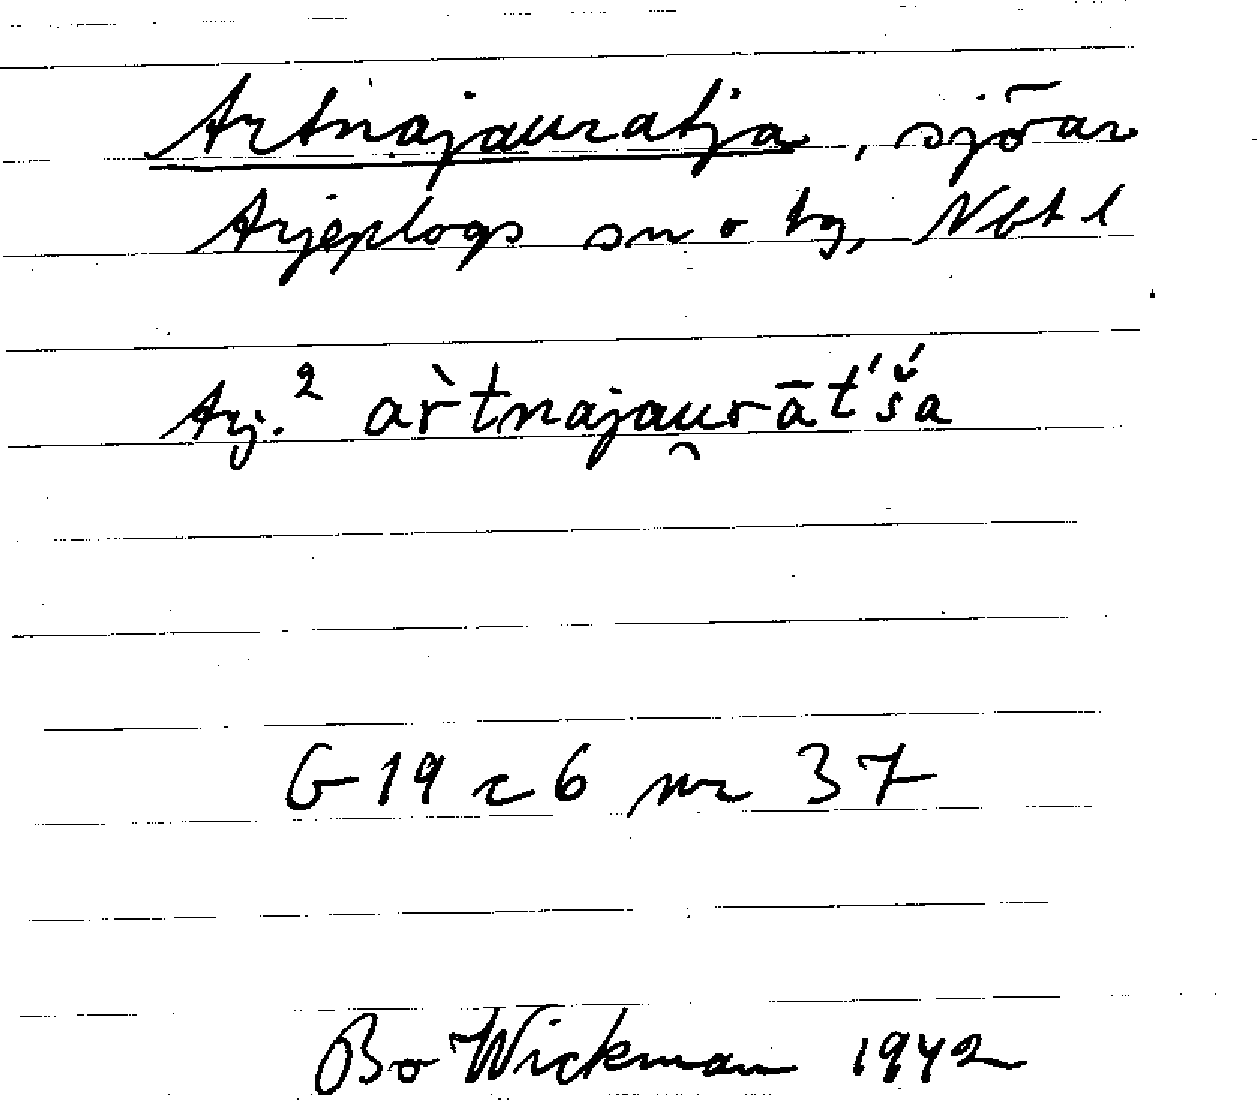 Artnajauratja, sjöar
Arjeplogs sn o tg, Nbt l
Arj.² ar̀tnajau̯rāt́'š́a
G 19 c 6 nr 37
Bo Wickman 1942